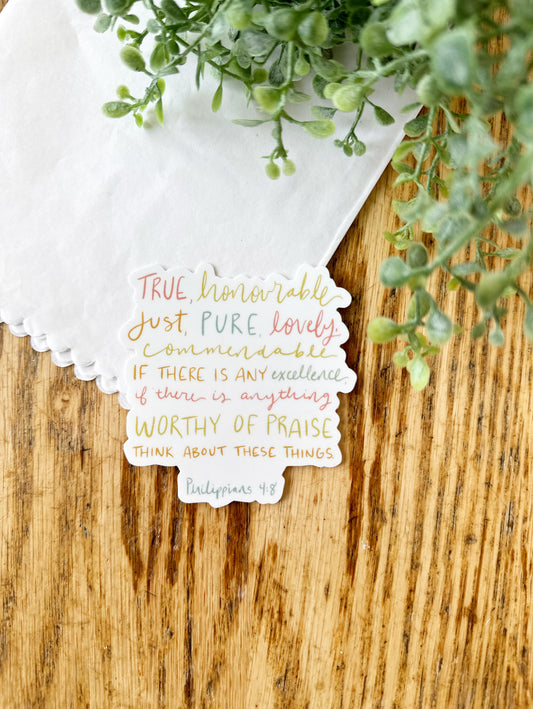 TRUE, honourable
Just, PURE, lovely,
commendable
IF THERE IS ANY excellence,
if there is anything
WORTHY OF PRAISE
THINK ABOUT THESE THINGS.
Philippians 4:8